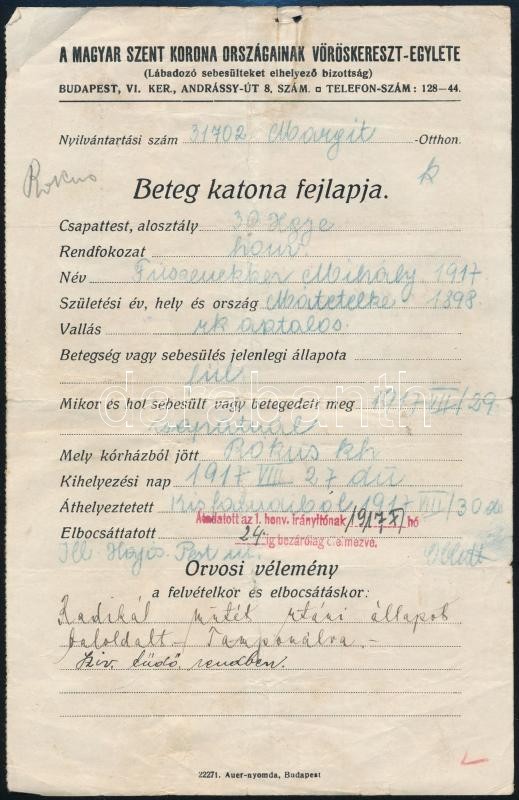 A MAGYAR SZENT KORONA ORSZÁGAINAK VÖRÖSKERESZT-EGYLETE
(Lábadozó sebesülteket elhelyező bizottság)
BUDAPEST, VI. KER., ANDRÁSSY-ÚT 8. SZÁM. □ TELEFON-SZÁM: 128—44.
Nyilvántartási szám 31702 Margit -Otthon.
Rókus
Beteg katona fejlapja.
Csapattest, alosztály 30
Rendfokozat honv.
Név Mihály 1917.
Születési év, hely és ország Mátételke 1898.
Vallás rk asztalos.
Betegség vagy sebesülés jelenlegi állapota
fül
Mikor és hol sebesült vagy betegedett meg 1917 VIII/29.
csapatnál
Mely kórházból jött Rókus kh
Kihelyezési nap 1917 VIII 27 du
Áthelyeztetett 1917 VIII/30
Átadatott az 1. honv. irányítónak 1917 XI hó
Elbocsáttatott 24 ig bezárólag élelmezve.
Orvosi vélemény
a felvételkor és elbocsátáskor:
Radikál műtét utáni állapot
baloldalt – Tamponálva. –
Szív, tüdő rendben.
darabanth
22271. Auer-nyomda, Budapest